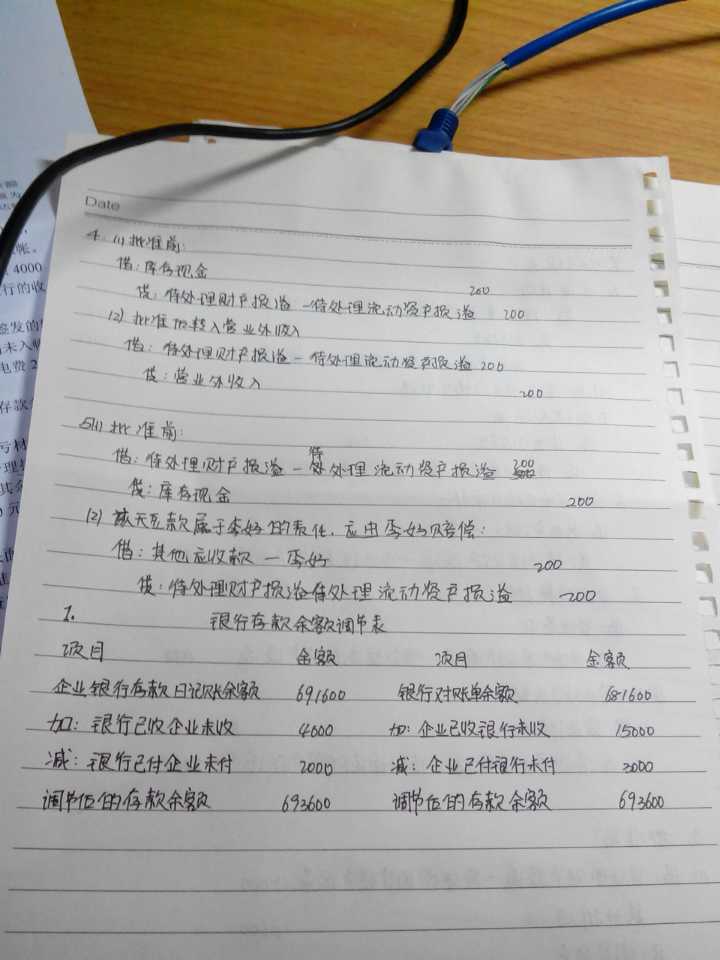 Date
4. (1) 批准前:
借: 库存现金 200
贷: 待处理财产损溢-待处理流动资产损溢 200
(2) 批准后转入营业外收入
借: 待处理财产损溢-待处理流动资产损溢 200
贷: 营业外收入 200
5(1) 批准前:
借: 待处理财产损溢-待处理流动资产损溢 200
贷: 库存现金 200
(2) 该天短款属于李好的责任, 应由李好赔偿:
借: 其他应收款-李好 200
贷: 待处理财产损溢待处理流动资产损溢 200
1. 银行存款余额调节表
项目 金额 项目 金额
企业银行存款日记账余额 691600 银行对账单余额 681600
加: 银行已收企业未收 4000 加: 企业已收银行未收 15000
减: 银行已付企业未付 2000 减: 企业已付银行未付 3000
调节后的存款余额 693600 调节后的存款余额 693600
帐。
4000
行的收
签发的
未入账
电费2
存款